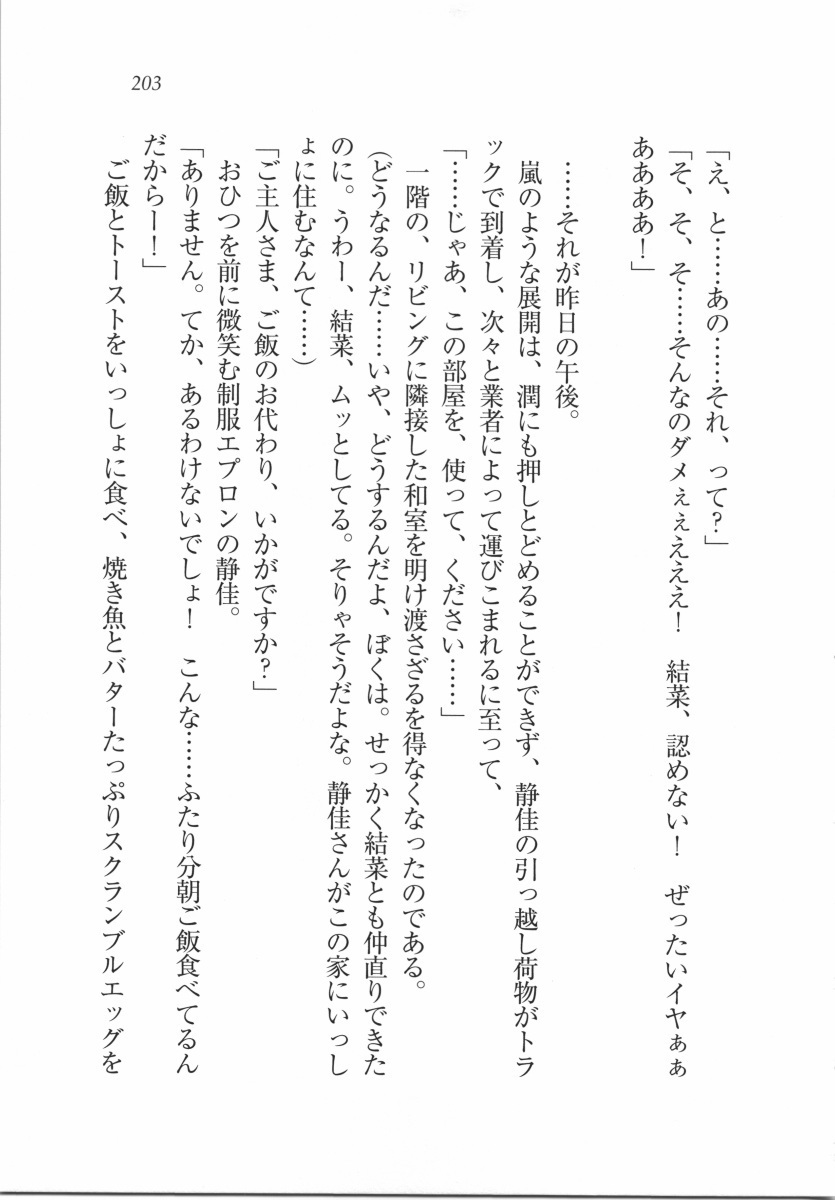 203
「え、と……あの……それ、って?」
「そ、そ、そ……そんなのダメぇぇえええ!　結菜、認めない!　ぜったいイヤぁぁ
ああああ!」
……それが昨日の午後。
嵐のような展開は、潤にも押しとどめることができず、静佳の引っ越し荷物がトラ
ックで到着し、次々と業者によって運びこまれるに至って、
「……じゃあ、この部屋を、使って、ください……」
一階の、リビングに隣接した和室を明け渡さざるを得なくなったのである。
(どうなるんだ……いや、どうするんだよ、ぼくは。せっかく結菜とも仲直りできた
のに。うわー、結菜、ムッとしてる。そりゃそうだよな。静佳さんがこの家にいっし
ょに住むなんて……)
「ご主人さま、ご飯のお代わり、いかがですか?」
おひつを前に微笑む制服エプロンの静佳。
「ありません。てか、あるわけないでしょ!　こんな……ふたり分朝ご飯食べてるん
だからー!」
ご飯とトーストをいっしょに食べ、焼き魚とバターたっぷりスクランブルエッグを